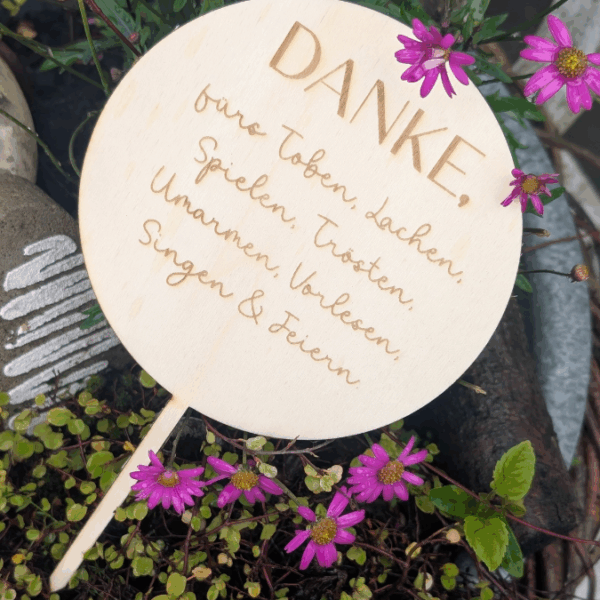 DANKE,
fürs Toben, Lachen,
Spielen, Trösten,
Umarmen, Vorlesen,
Singen & Feiern.